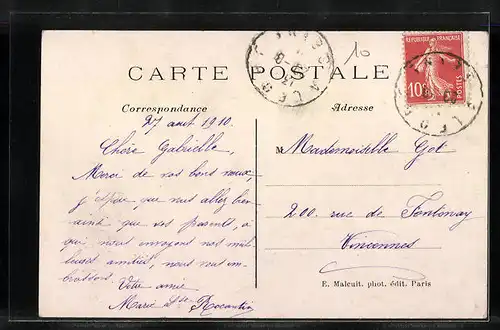 10
REPUBLIQUE FRANÇAISE
10
POSTES
CARTE POSTALE
Correspondance
Adresse
27 aout 1910.
Chère Gabrielle,
Merci de vos bons vœux,
j'espère que vous allez bien
ainsi que vos parents, à
qui, nous envoyons nos meil
leures amitiés, nous vous em
brassons.
Votre amie
Marie
M Mademoiselle Got
200 rue de Fontenay
Vincennes
E. Malcuit. phot. édit. Paris